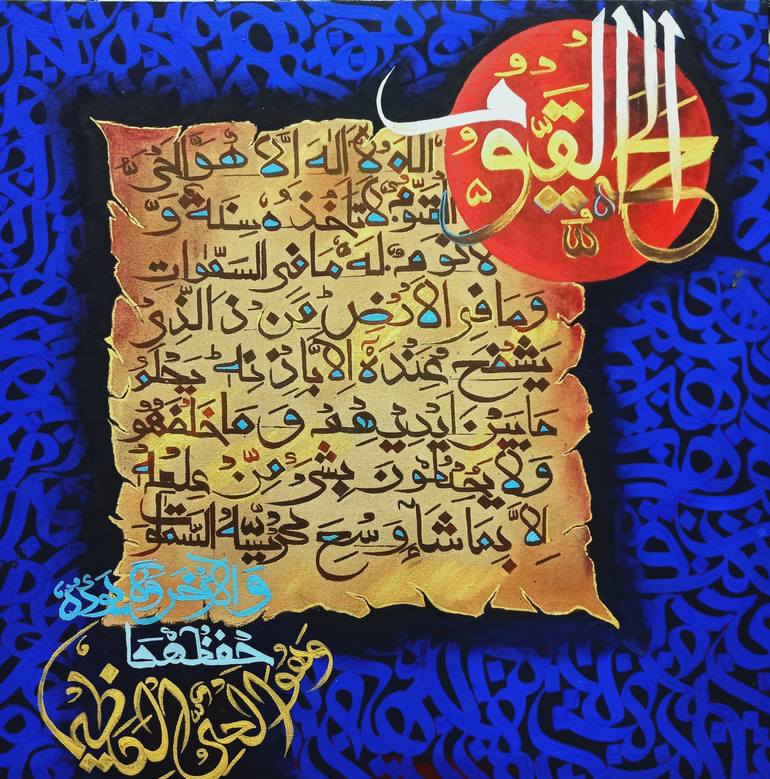 الحي القيوم
الله لا اله الا هو الحي
القيوم لا تاخذه سنة و
لا نوم له ما في السموات
وما في الارض من ذالذي
يشفع عنده الا باذنه يعلم
ما بين ايديهم وما خلفهم
ولا يحيطون بشئ من علمه
الا بما شاء وسع كرسيه السموت
والارض ولا يوده
حفظهما
وهو العلي العظيم